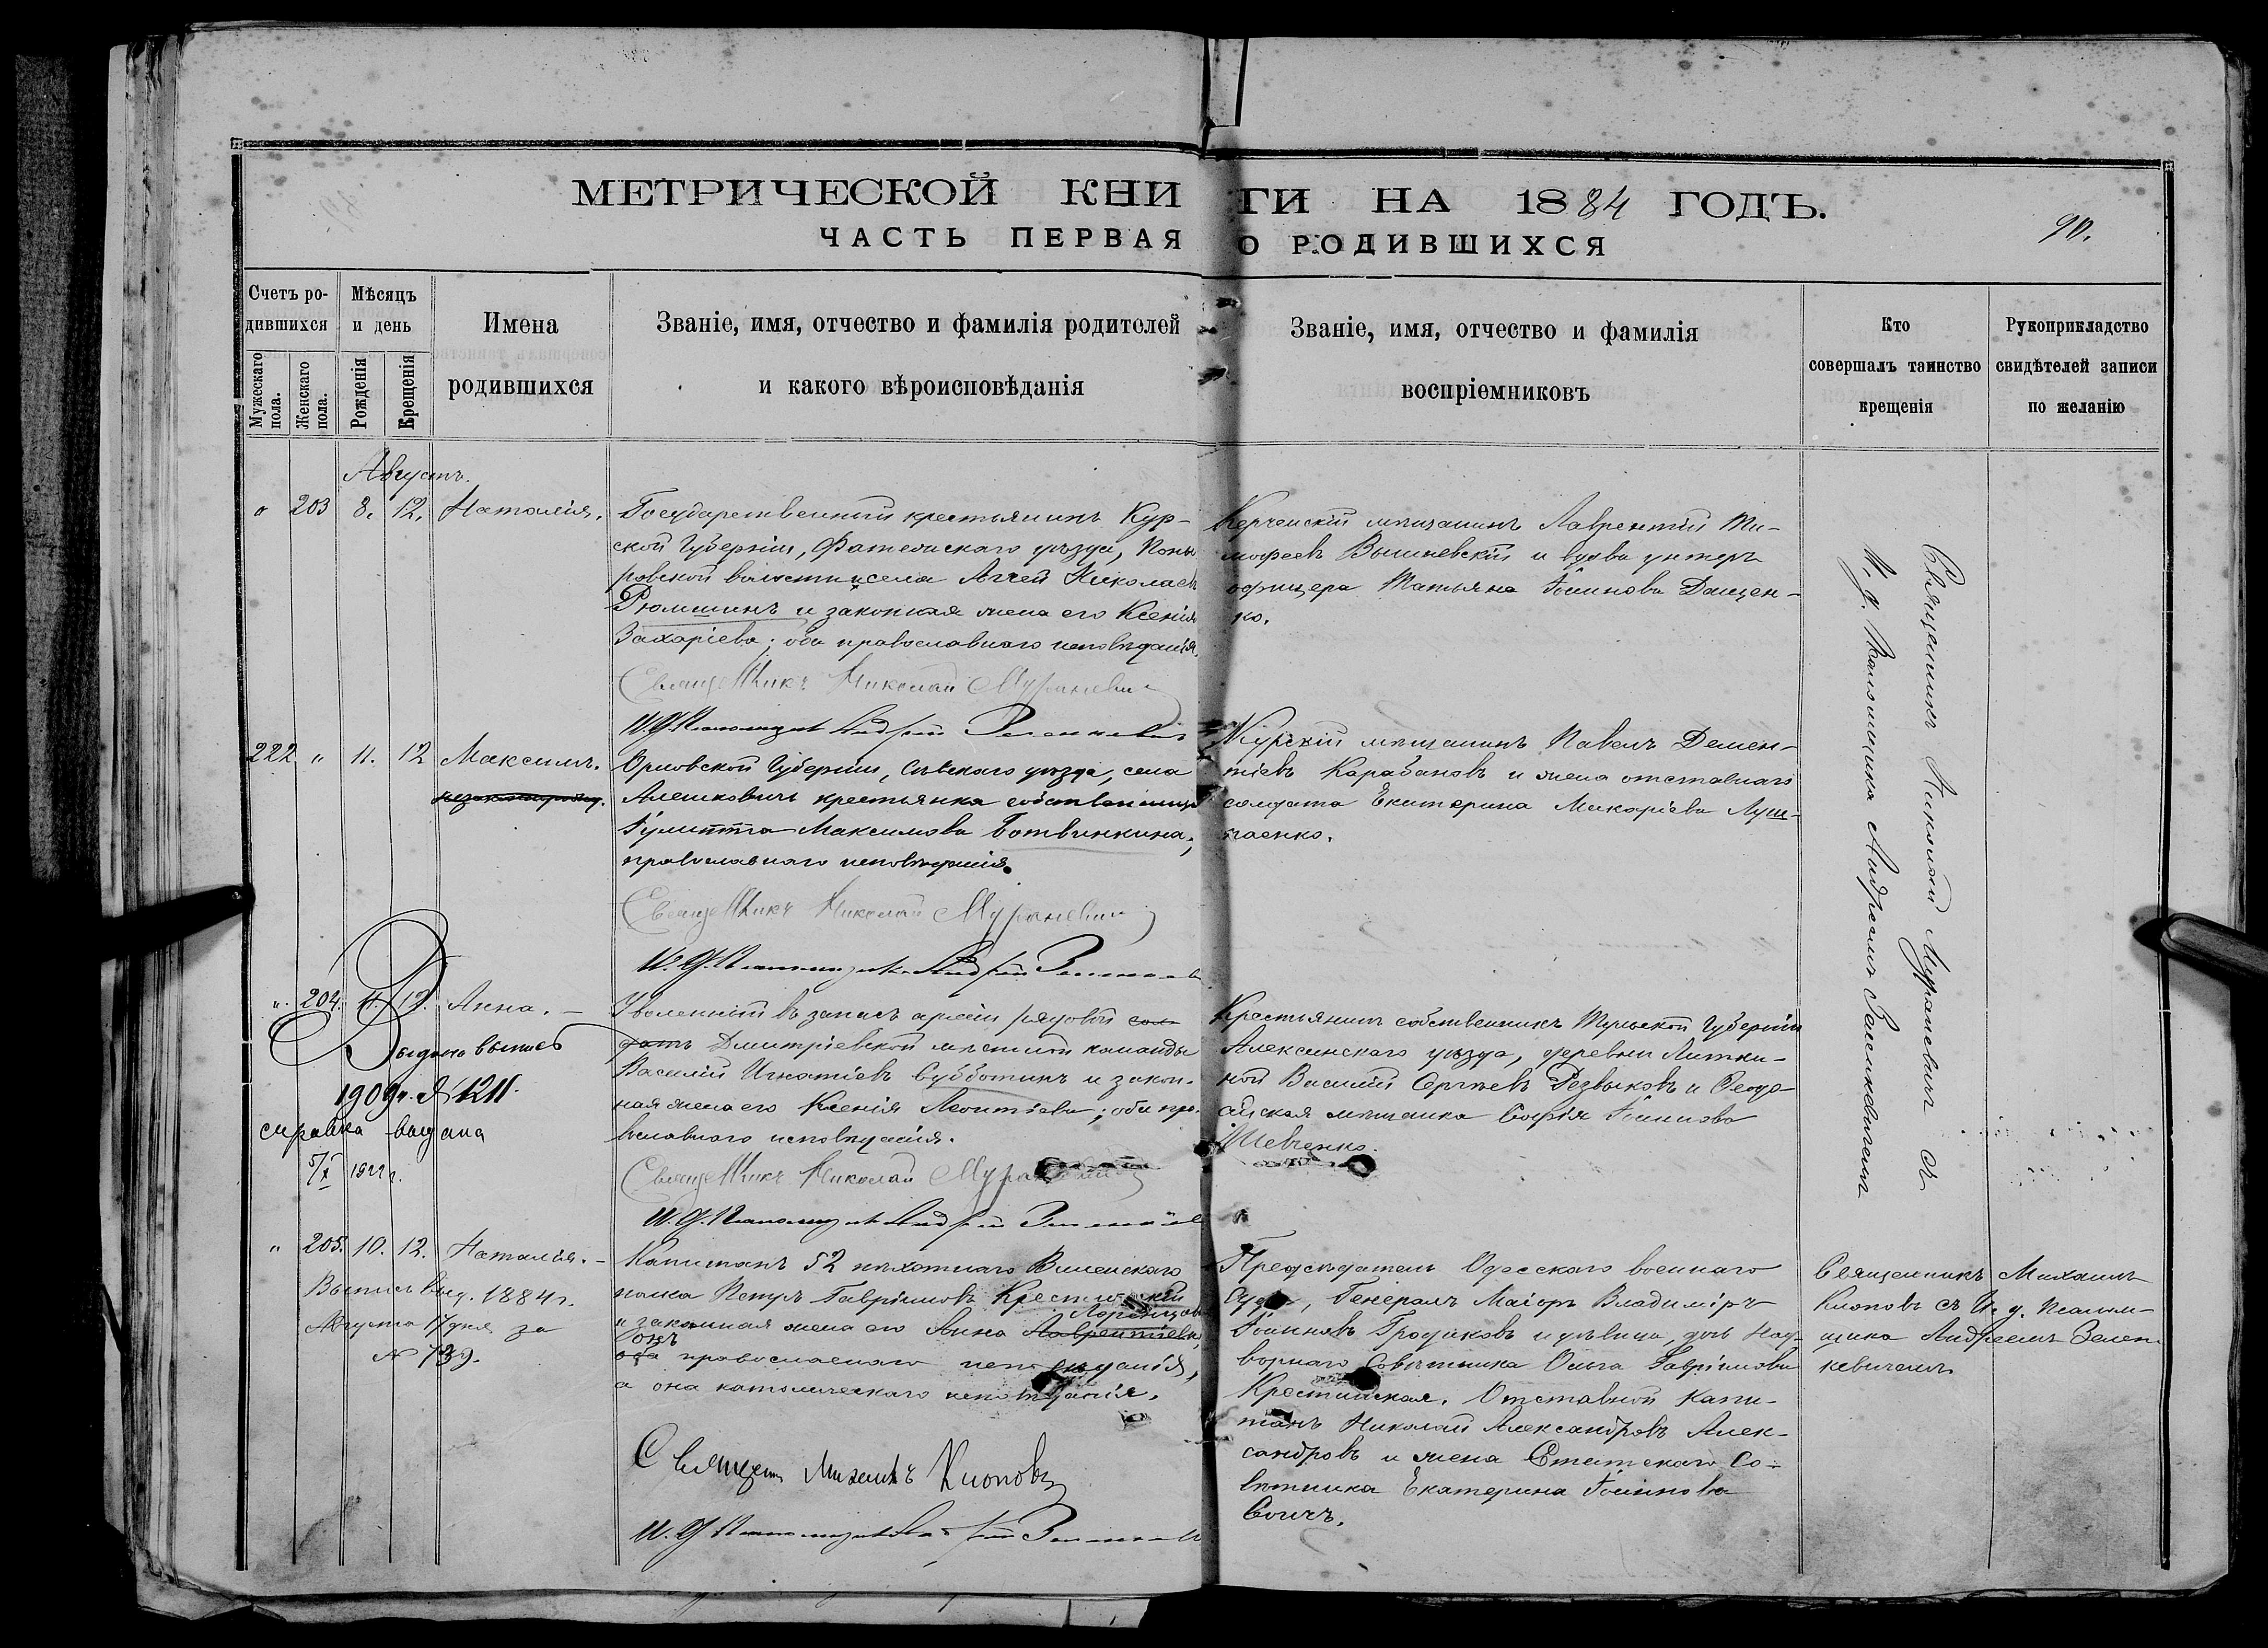 МЕТРИЧЕСКОЙ КНИГИ НА 1884 ГОДЪ.
ЧАСТЬ ПЕРВАЯ О РОДИВШИХСЯ
90.
Счетъ ро-
дившихся
Мужескаго пола.
Женскаго пола.
Мѣсяцъ
и день
Рожденія
Крещенія
Имена
родившихся
Званіе, имя, отчество и фамилія родителей
и какого вѣроисповѣданія
Званіе, имя, отчество и фамилія
воспріемниковъ
Кто
совершалъ таинство
крещенія
Рукоприкладство
свидѣтелей записи
по желанію
Августъ.
" 203 8. 12. Наталія.
Государственный крестьянинъ Кур-
ской Губерніи, Фатежскаго уѣзда, Поны
ровской волости села Николаевъ
Рюмшинъ и законная жена его Ксенія
Захаріева; оба православнаго исповѣданія.
Священникъ Николай Мураневич
И. Д. Псаломщика Андрей Зеленкевич
Керченскій мѣщанинъ Лаврентій Ти-
мофеевъ Вышневскій и вдова унтеръ
офицера Татьяна Іоаннова Доцен-
ко.
222 " 11. 12 Максимъ.
незаконнорожд.
Орловской Губерніи, Сѣвскаго уѣзда, села
Алешковичъ крестьянка собственница
Іулитта Максимова Ботвинкина;
православнаго исповѣданія.
Священникъ Николай Мураневич
И. Д. Псаломщика Андрей Зеленкевич
Курскій мѣщанинъ Павелъ Демен-
тіевъ Карабановъ и жена отставнаго
солдата Екатерина Макаріева Луш-
паенко.
". 204. 11. 12. Анна. —
Выдана выпись
1909 г. № 1211.
справка выдана
5/X 1922 г.
Уволенный въ запасъ арміи рядовой сол-
датъ Дмитріевской мѣстной команды
Василій Игнатіевъ Субботинъ и закон-
ная жена его Ксенія Леонтіева; оба пра-
вославнаго исповѣданія.
Священникъ Николай Мураневич
И. Д. Псаломщика Андрей Зеленкевич
Крестьянинъ собственникъ Тульской Губерніи
Алексинскаго уѣзда, деревни Литки-
ной Василій Сергѣевъ Резвыковъ и Ѳеодо-
сійская мѣщанка Софія Іоаннова
Шевченко.
Священникъ Николай Мураневичъ съ
И. д. Псаломщика Андреемъ Зеленкевичемъ
" 205. 10. 12. Наталія. —
Выпись выд. 1884 г.
Августа 17 дня за
№ 739.
Капитанъ 52 пѣхотнаго Виленскаго
полка Петръ Гавриловъ
и законная жена его Анна Лаврентіева,
Онъ
оба православнаго исповѣданія,
а она католическаго исповѣданія.
Священникъ Михаилъ Клоповъ
И. Д. Псаломщика Андрей Зеленкевич
Предсѣдатель Одесскаго военнаго
Суда, Генералъ Маіоръ Владиміръ
Іоанновъ Гродековъ и дѣвица, дочь Над-
ворнаго Совѣтника Ольга Гавріилова
Отставной Капи-
танъ Николай Александровъ Алек-
сандровъ и жена Статскаго Со-
вѣтника Екатерина Іоаннова
Священникъ Михаилъ
Клоповъ съ И. д. Псалом-
щика Андреемъ Зелен-
кевичемъ